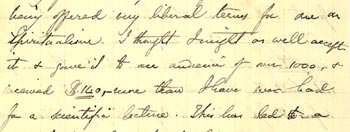 being offered very liberal terms for one on
Spiritualism. I thought I might as well accept
it & give it to an audience of over 1000, &
received $140, more than I have ever had
for a scientific lecture. This has led to a